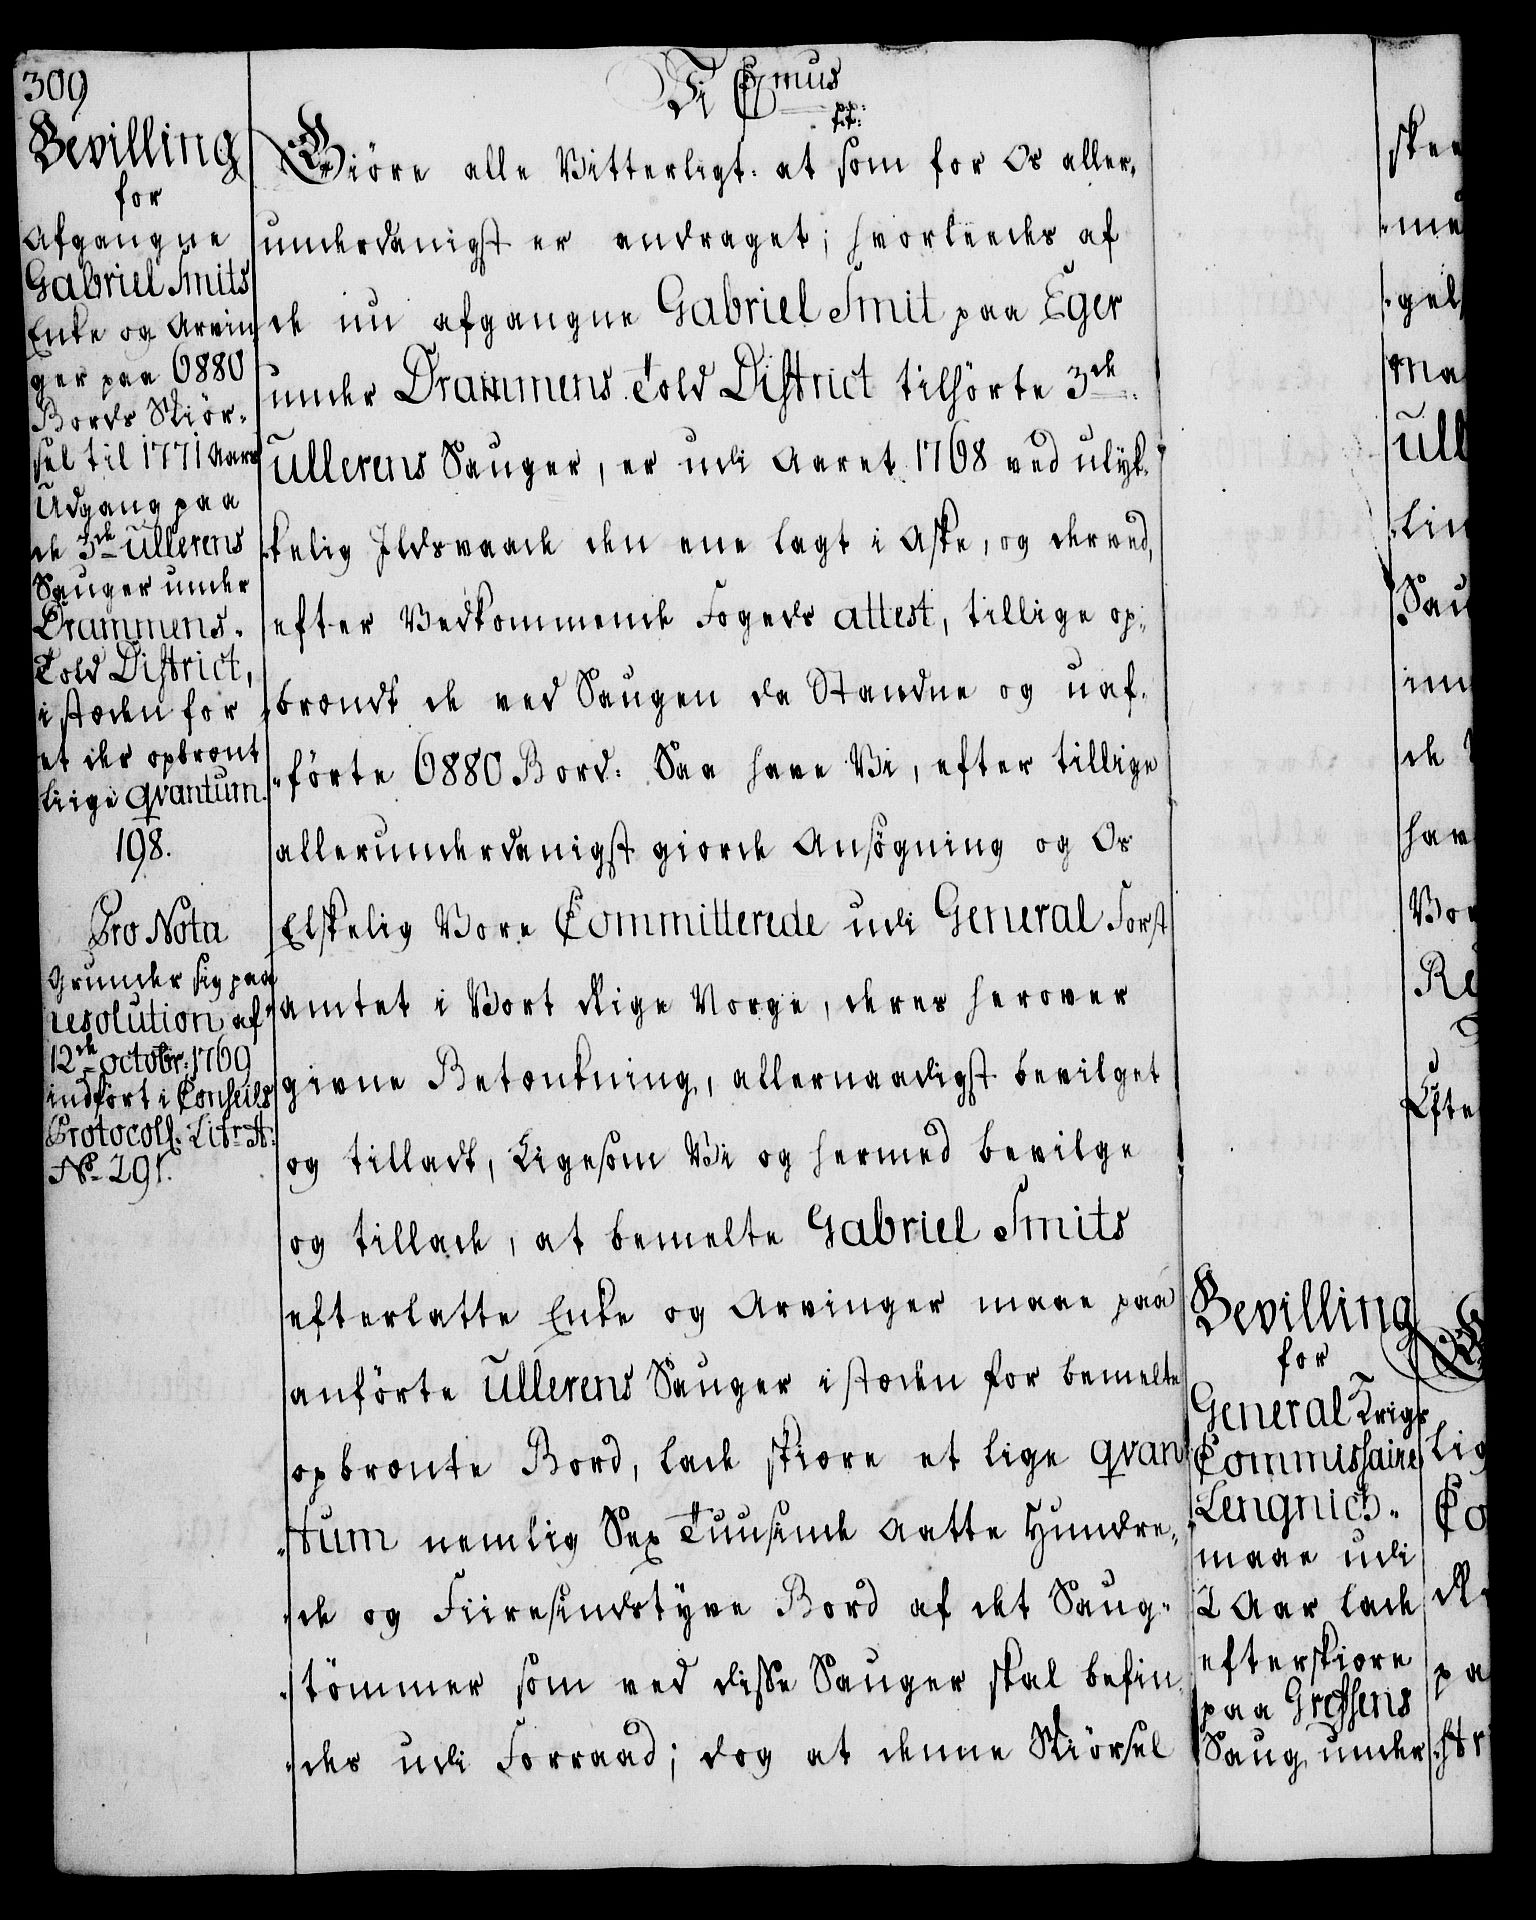 309
Bevilling
for
Afgangne
Gabriel Smits
Enke og Arvin
ger paa 6880
Bords Skiör-
sel til 1771 Aars
Udgang paa
de 3de Ullerens
Sauger under
Drammens-
Told District,
i stæden for
et der opbrent
liige qvantum.
198.
Pro Nota
Grunder sig paa
resolution af
12de octobr: 1769
indfört i Conseils
Protocoll. Litr A:
No 291.
Vi C7mus
p.p:
t:t:
Giöre alle Vitterligt: at som for Os aller-
underdanigst er andraget; hvorleedes af
de nu afgangne Gabriel Smit paa Eger
under Drammens Told District tilhörte 3de
Ullerens Sauger, er udi Aaret 1768 ved ulyk-
kelig Ildsvaade den ene lagt i Aske, og derved,
efter Vedkommende Fogeds attest, tillige op-
brændt de ved Saugen da Standne og uaf-
förte 6880 Bord: Saa have Vi, efter tillige
allerunderdanigst giorde Ansögning og Os
Elskelig Vore Committerede udi General Forst
amtet i Vort Rige Norge, deres herover
givne Betænkning, allernaadigst bevilget
og tilladt, Ligesom Vi og hermed bevilge
og tillade, at bemelte Gabriel Smits
efterlatte Enke og Arvinger maae paa
anförte Ullerens Sauger i stæden for bemelte
opbrænte Bord, lade skiære et lige qvan
tum nemlig Sex Tuusinde Aatte Hundre-
de og Fiiresindstyve Bord af det Saug-
tömmer som ved disse Sauger skal befin
des udi Forraad; dog at denne Skiörsel
Bevilling
for
General Krigs
Commissaire
Lengnich-
maae udi
2 Aar lade
efterskiære
paa Gressens
Saug under
skee
me
gel
ma
Ull
lin
Sau
im
de
hav
Vor
Re
Efte
lig
Co
pa
str